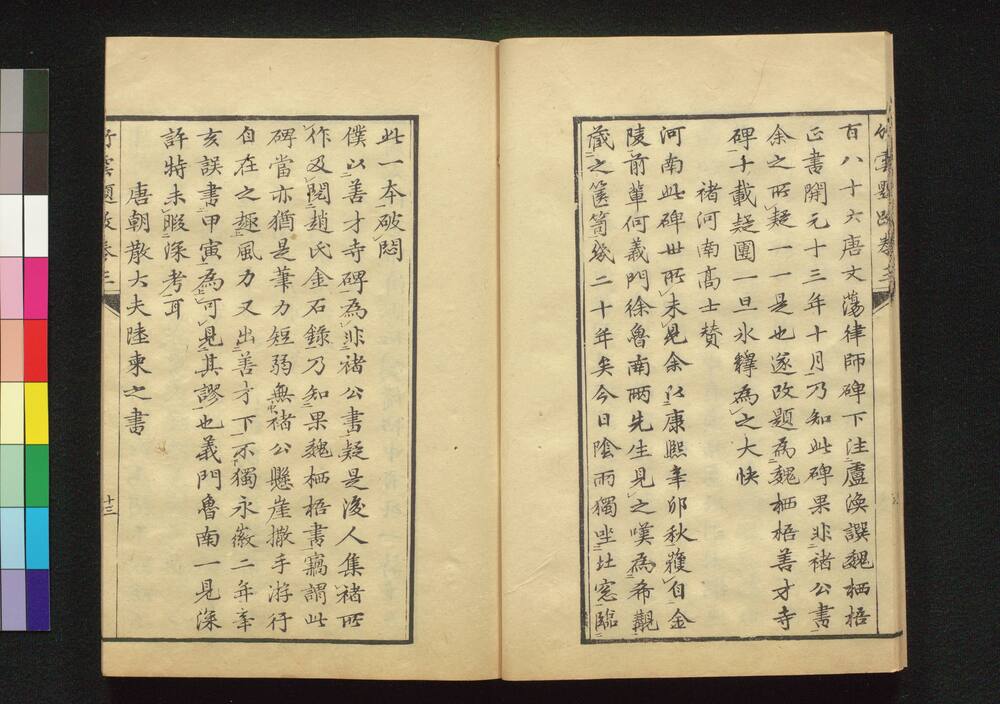 竹雲題跋卷三
百八十六唐文蕩律師碑下注盧渙譔魏栖梧
正書開元十三年十月乃知此碑果非褚公書
余之所疑一一是也遂改題為魏栖梧善才寺
碑十載疑團一旦氷釋為之大快
褚河南高士賛
河南此碑世所未見余以康熙辛卯秋獲自金
陵前輩何義門徐魯南兩先生見之嘆為希覯
蔵之篋笥幾二十年矣今日陰雨獨坐北窓臨
此一本破悶
僕以善才寺碑為非褚公書疑是後人集褚所
作及閲趙氏金石錄乃知果魏栖梧書竊謂此
碑當亦猶是筆力短弱無褚公懸崖撒手游行
自在之趣風力又出善才下不獨永徽二年辛
亥誤書甲寅為可見其謬也義門魯南一見深
許特未暇深考耳
唐朝散大夫陸柬之書
竹雲題跋卷三
十三